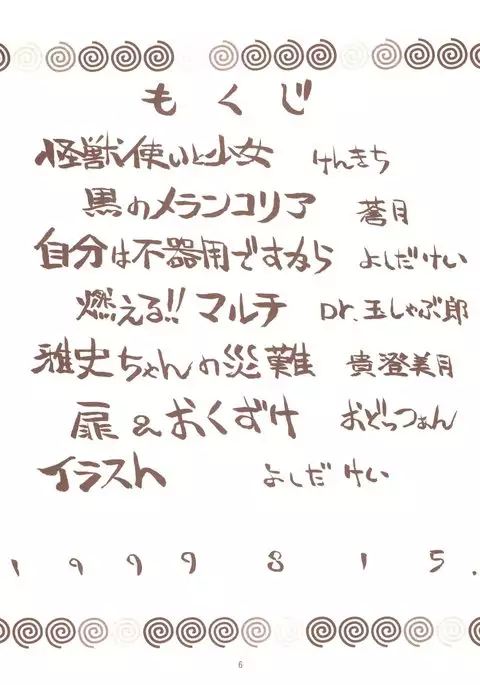 もくじ
怪獣使いと少女 けんきち
黒のメランコリア 蒼月
自分は不器用ですなら よしだけい
燃える!!マルチ Dr.玉しゃぶ郎
雅史ちゃんの災難 貴澄美月
扉&おくずけ おどっつぁん
イラスト よしだけい
1999 8 15.
6